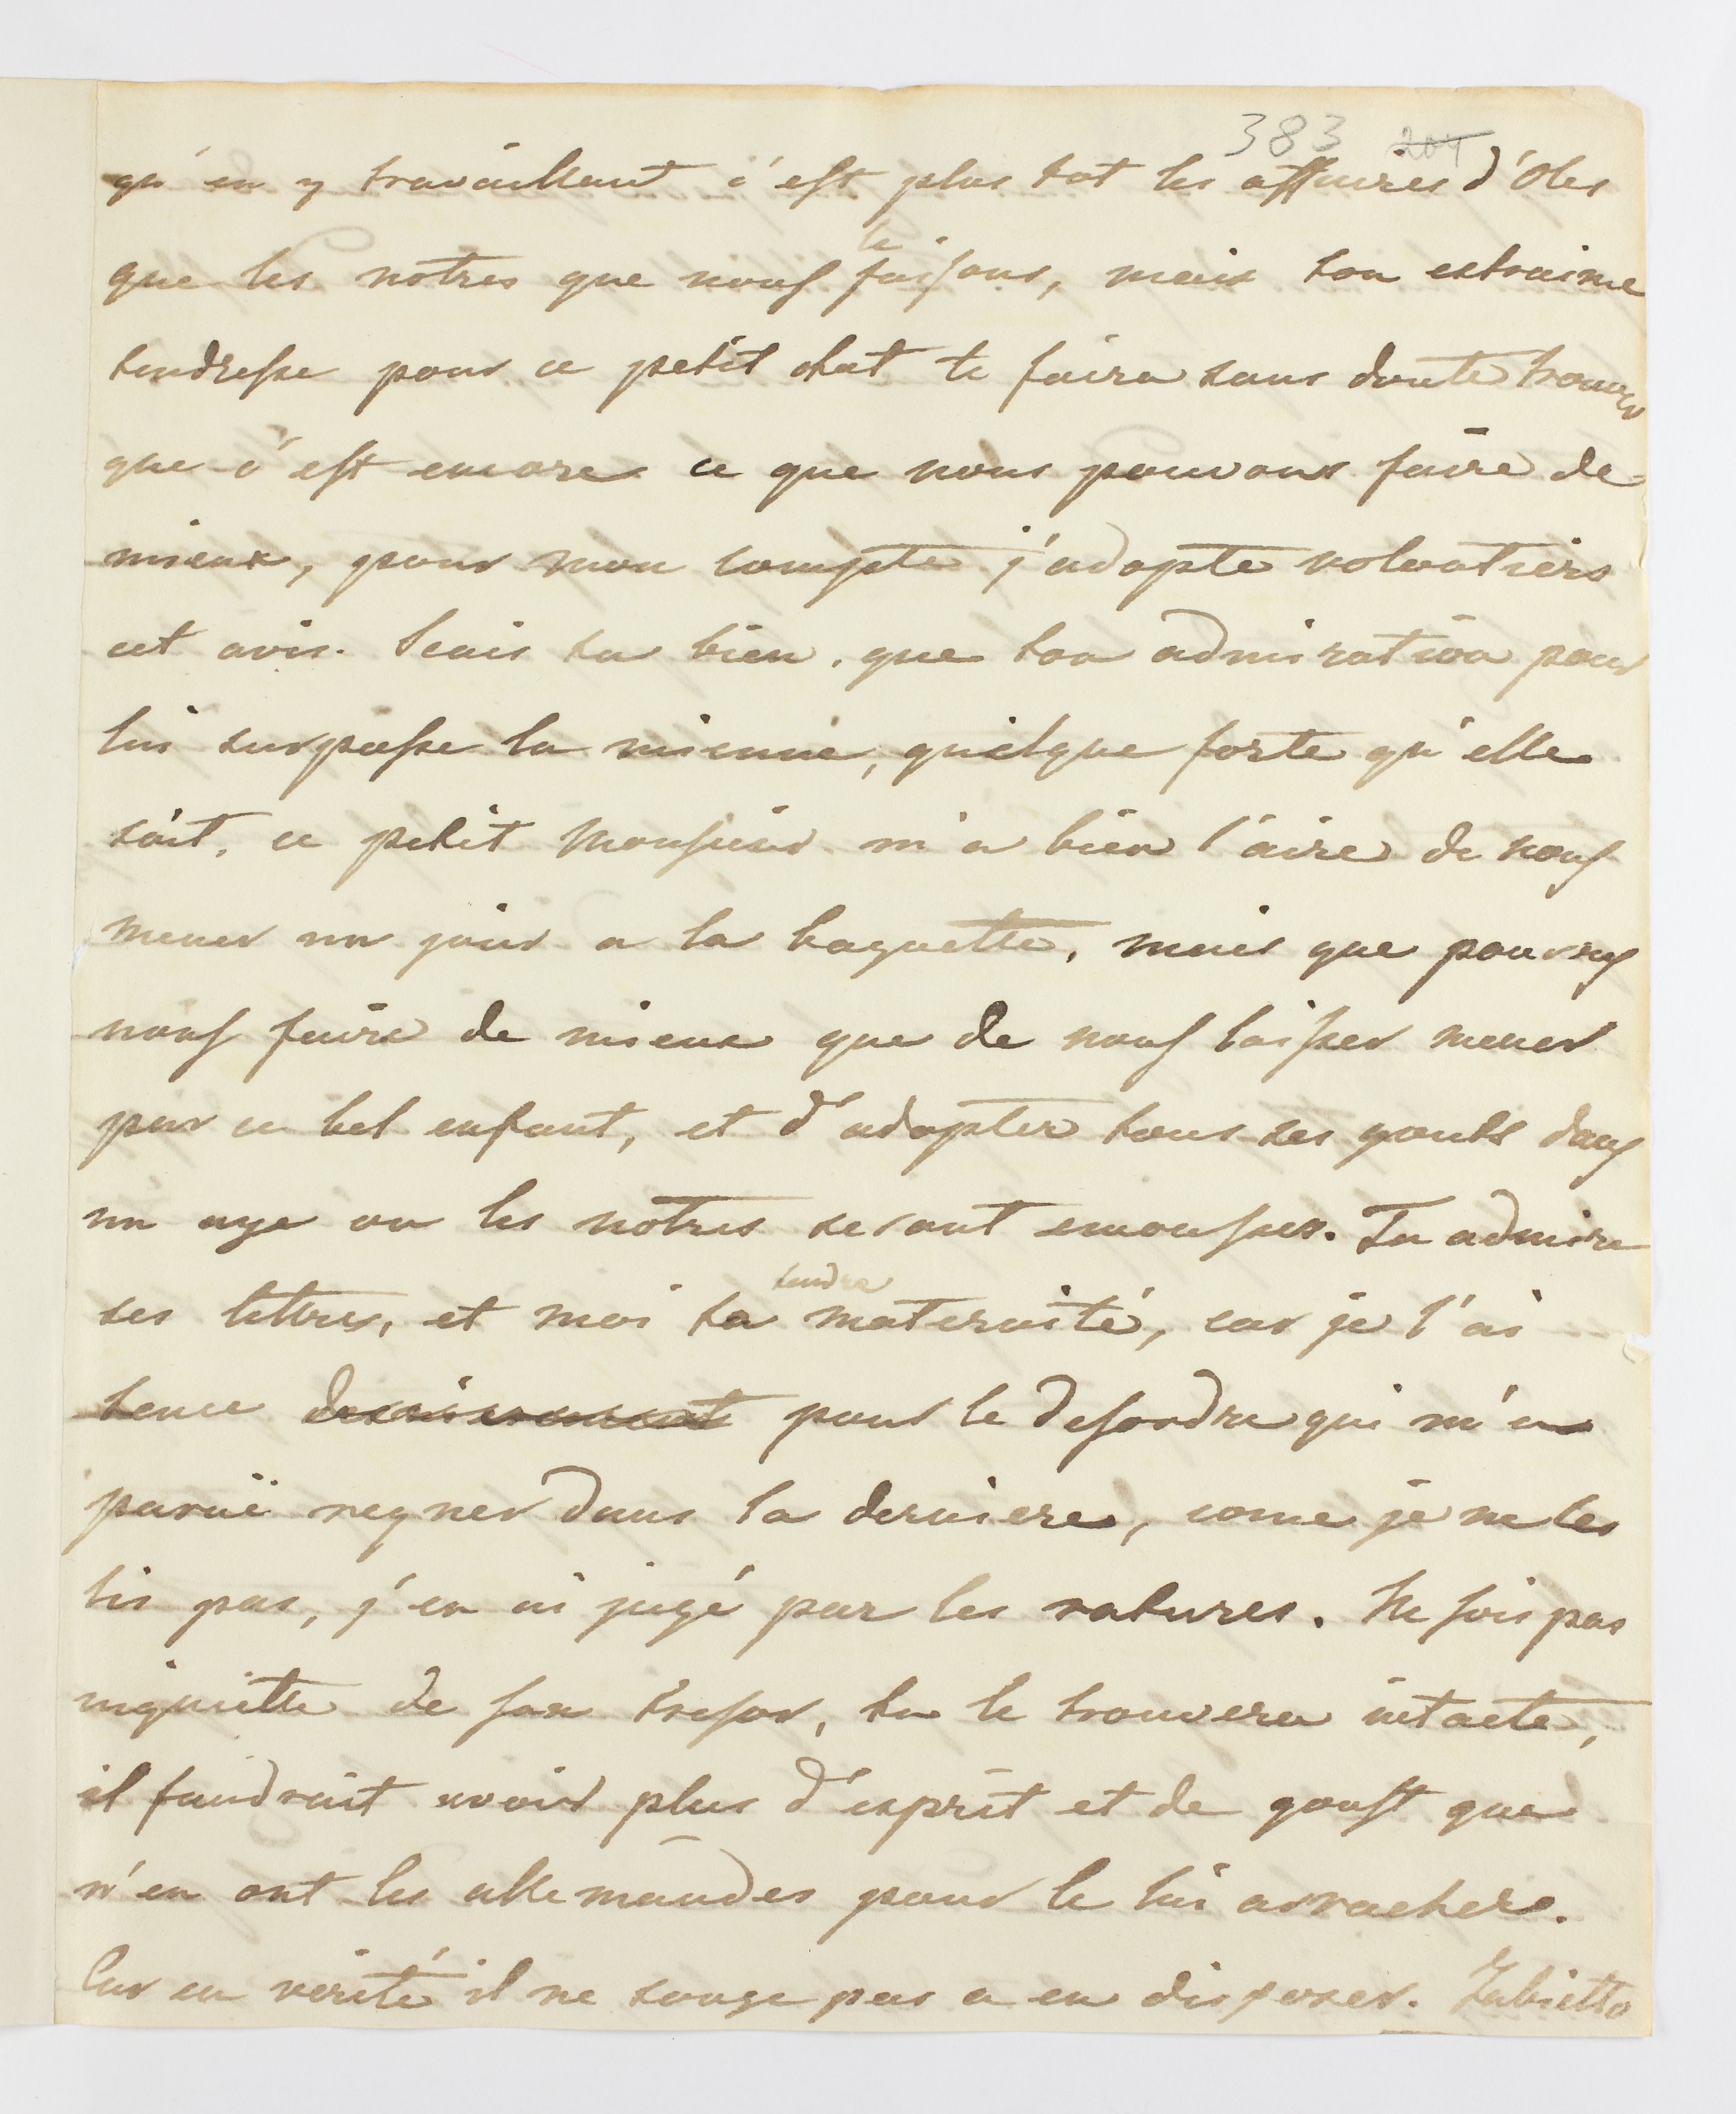 383 204
qu'en y travaillant c'est plus tot les affaires d'Oles
que les notres que nous le faisons, mais ton extraime
tendresse pour ce petit chat te faira sans doute trouver
que c'est encore ce que nous pouvons faire de
mieux, pour mon compte j'adopte volontiers
cet avis. Scais tu bien, que ton admiration pour
lui surpasse la mienne, quelque forte qu'elle
soit, ce petit Monsieur m'a bien l'aire de nous
mener un jour a la baguette, mais que pouvons
nous faire de mieux que de nous laisser mener
par ce bel enfant, et d'adopter tous ses gouts dans
un age ou les notres seront emousses. Tu admire
ses lettres, et moi ta tendre maternité, car je l'ai
tence pour le desordre qui m'a
parue regner dans la derniere, come je ne les
lis pas, j'en ai jugé par les ratures. Ne sois pas
inquiette de son tresor, tu le trouvera intacte,
il faudrait avoir plus d'esprit et de goust que
n'en ont les allemandes pour le lui arracher.
Car en verité il ne songe pas a en disposer.